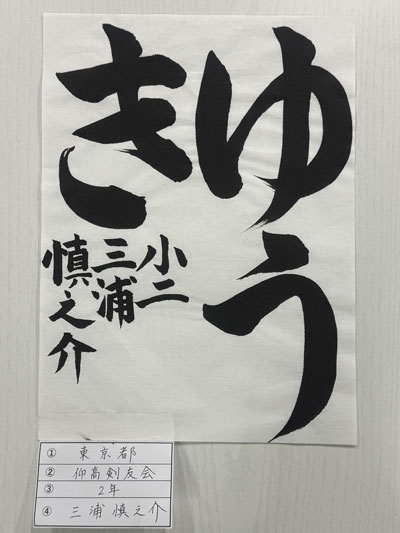 ゆう
き
小二
三浦
慎之介
① 東京都
② 仰高剣友会
③ 2年
④ 三浦慎之介